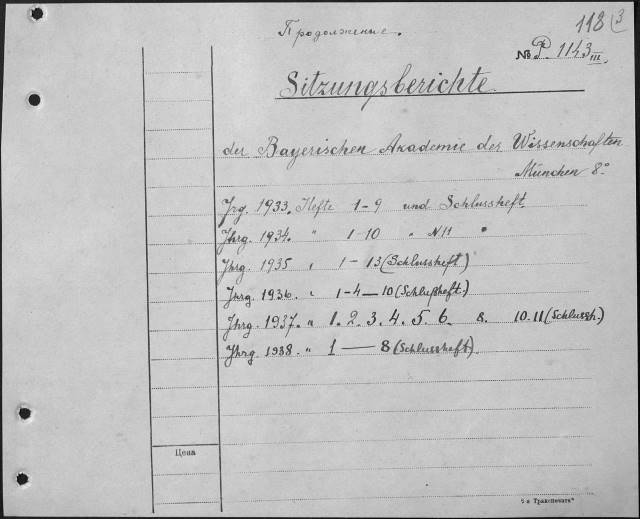 Продолжение.
118 (3
№ P. 1143 III.
Sitzungsberichte
der Bayerischen Akademie der Wissenschaften
München 8°
Jrg. 1933. Hefte 1-9 und Schlussheft.
Jhrg. 1934. " 1-10 " N11 "
Jhrg. 1935 " 1-13 (Schlussheft)
Jhrg. 1936. " 1-4—10 (Schlußheft.)
Jhrg. 1937. " 1. 2. 3. 4. 5. 6. 8. 10-11 (Schlussh.)
Jhrg 1938. " 1 — 8 (Schlussheft).
Цена
"Транспечать"